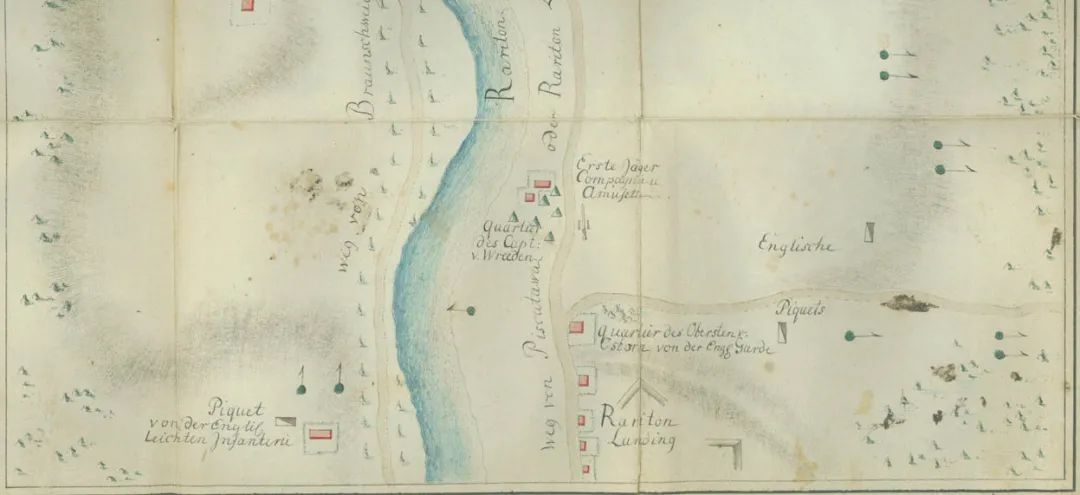 weg von Braunschwei
Rariton
weg von Piscatawai oder Rariton L
Erste Jäger
Compagnie u
Amusett
Quartier
des Capt:
v. Wreeden
Englische
Piquets
Quartier des Obersten
Estorn von der Engl Garde
Piquet
von der Englis
Leichten Infanterie
Rariton
Lunding